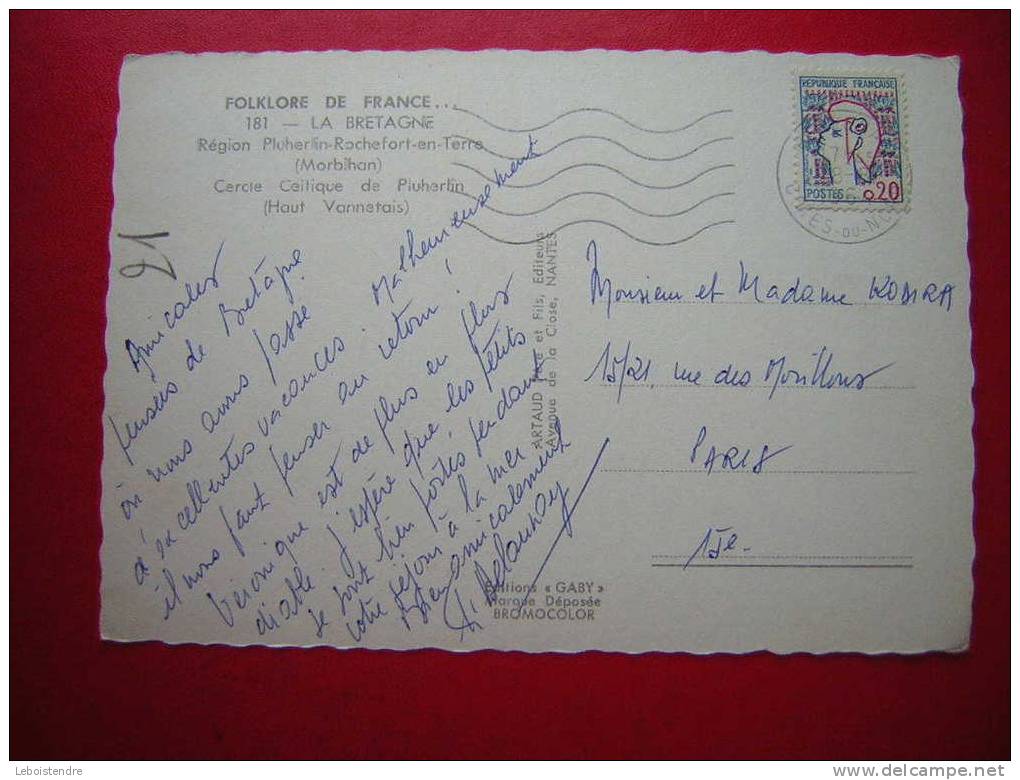 FOLKLORE DE FRANCE...
181 — LA BRETAGNE
Région Pluherlin-Rochefort-en-Terre
(Morbihan)
Cercle Celtique de Pluherlin
(Haut Vannetais)
21
Amicales
pensées de Bretagne
où nous avons passé
d'excellentes vacances Malheureusement
il nous faut penser au retour !
Véronique est de plus en plus
diable. J'espère que les petits
se sont bien portés pendant
votre séjour à la mer.
Bien amicalement
Delaunay
ARTAUD Père et Fils, Editeurs
Avenue de la Close, NANTES
Editions « GABY »
Marque Déposée
BROMOCOLOR
REPUBLIQUE FRANÇAISE
POSTES 0,20
-DU-NORD
Monsieur et Madame KOBIRA
15/21, rue des Morillons
PARIS
15e.
Leboistendre
www.delcampe.net